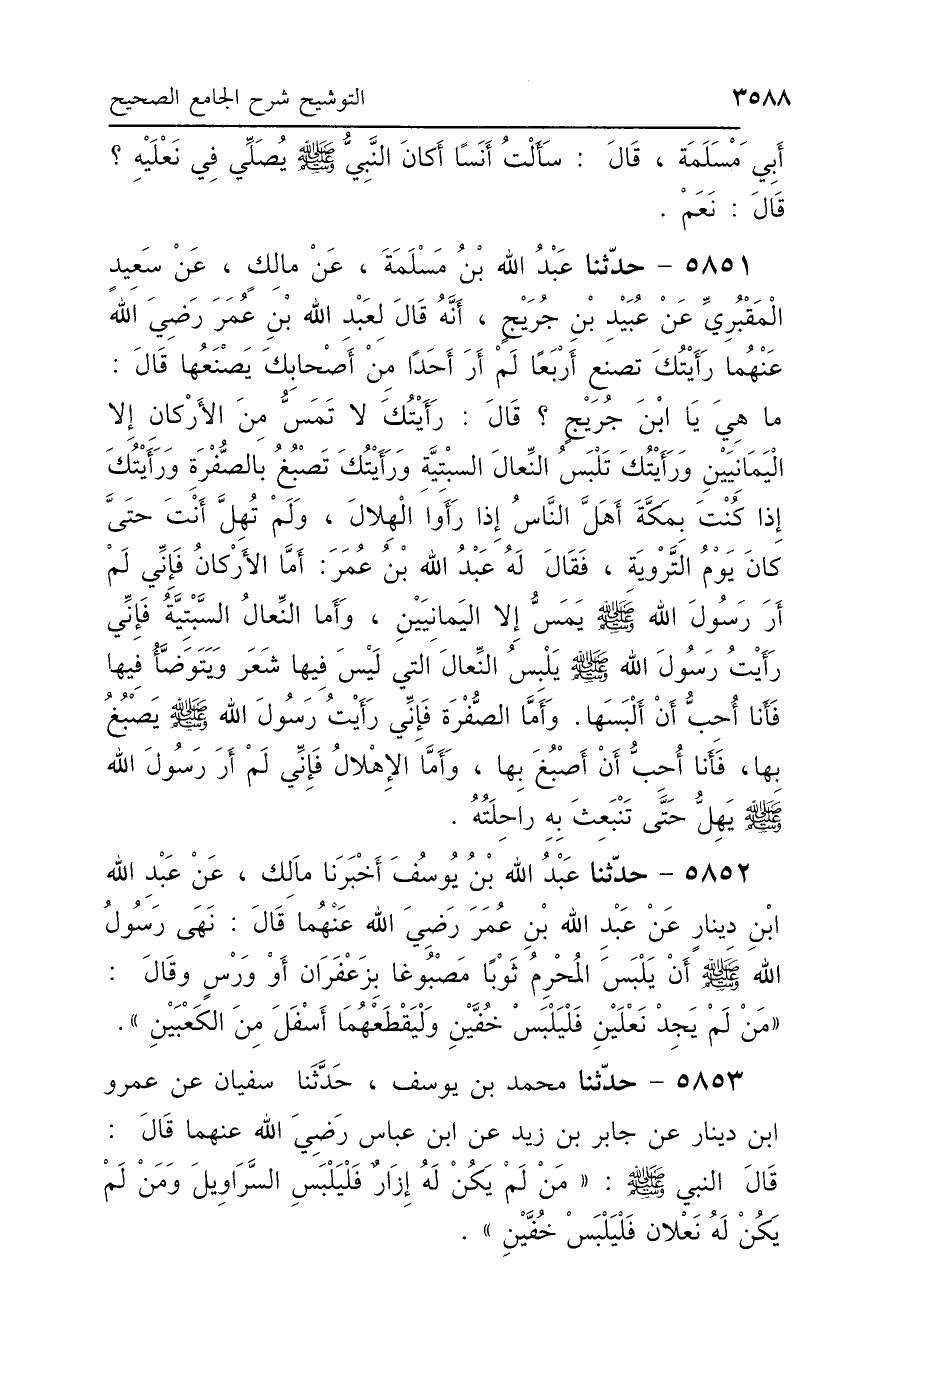 ٣٥٨٨ التوشيح شرح الجامع الصحيح
أَبِي مَسْلَمَة ، قَالَ : سَأَلْتُ أَنَسًا أكانَ النَّبِيُّ ﷺ يُصَلِّي فِي نَعْلَيْهِ ؟
قَالَ : نَعَمْ .
٥٨٥١ – حدّثنا عَبْدُ الله بْنُ مَسْلَمَةَ ، عَنْ مالِكٍ ، عَنْ سَعِيدٍ
الْمَقْبُرِيِّ عَنْ عُبَيْدِ بْنِ جُرَيْجٍ ، أَنَّهُ قَالَ لِعَبْدِ الله بْنِ عُمَرَ رَضِيَ الله
عَنْهُما رَأَيْتُكَ تصنع أَرْبَعًا لَمْ أرَ أَحَدًا مِنْ أَصْحابِكَ يَصْنَعُها قَالَ :
ما هِيَ يَا ابْنَ جُرَيْجٍ ؟ قَالَ : رَأَيْتُكَ لا تَمَسُّ مِنَ الأَرْكان إلا
الْيَمَانِيَيْنِ وَرَأَيْتُكَ تَلْبَسُ النِّعالَ السبْتِيَّة وَرَأَيْتُكَ تَصْبُغُ بالصُّفْرَة وَرَأَيْتُكَ
إذا كُنْتَ بِمكَّةَ أهَلَّ النَّاسُ إذا رَأَوا الْهِلالَ ، وَلَمْ تُهِلَّ أَنْتَ حتىَّ
كانَ يَوْمُ التَّرْوِيَة ، فَقَالَ لَهُ عَبْدُ الله بْنُ عُمَرَ: أمَّا الأَرْكانُ فَإنِّي لَمْ
أَرَ رَسُولَ الله ﷺ يَمَسُّ إلا اليَمانِيَيْنِ ، وَأما النِّعالُ السَّبْتِيَّةُ فَإنِّي
رَأَيْتُ رَسُولَ الله ﷺ يَلْبِسُ النِّعالَ التي لَيْسَ فِيها شَعَر وَيَتَوَضَّأُ فِيها
فَأَنا أُحِبُّ أنْ أَلْبَسَها. وَأَمَّا الصُّفْرَة فَإنِّي رَأَيْتُ رَسُولَ الله ﷺ يَصْبُغُ
بِها، فَأَنا أُحِبُّ أَنْ أصْبُغَ بِها ، وَأَمَّا الإهْلالُ فَإنِّي لَمْ أَرَ رَسُولَ الله
ﷺ يَهِلُّ حَتَّى تَنْبَعِثَ بِهِ راحِلَتُهُ .
٥٨٥٢ – حدّثنا عَبْدُ الله بْنُ يُوسُفَ أَخْبَرَنا مَالَك ، عَنْ عَبْدِ الله
ابْنِ دِينارٍ عَنْ عَبْدِ الله بْنِ عُمَرَ رَضِيَ الله عَنْهُما قَالَ : نَهَى رَسُولُ
الله ﷺ أنْ يَلْبَسَ المُحْرِمُ ثَوْبًا مَصْبُوغا بِزَعْفَرَان أَوْ وَرْسٍ وقالَ :
«مَنْ لَمْ يَجِدْ نَعْلَيْنِ فَلْيَلْبَسْ خُفَّيْنِ وَلْيَقْطَعْهُمَا أَسْفَلَ مِنَ الكَعْبَيْنِ ».
٥٨٥٣ – حدّثنا محمد بن يوسف ، حَدَّثَنَا سفيان عن عمرو
ابن دينار عن جابر بن زيد عن ابن عباس رَضِيَ الله عنهما قَالَ :
قَالَ النبي ﷺ : « مَنْ لَمْ يَكُنْ لَهُ إزَارٌ فَلْيَلْبَسِ السَّرَاوِيلَ وَمَنْ لَمْ
يَكُنْ لَهُ نَعْلان فَلْيَلْبَسْ خُفَّيْنِ » .